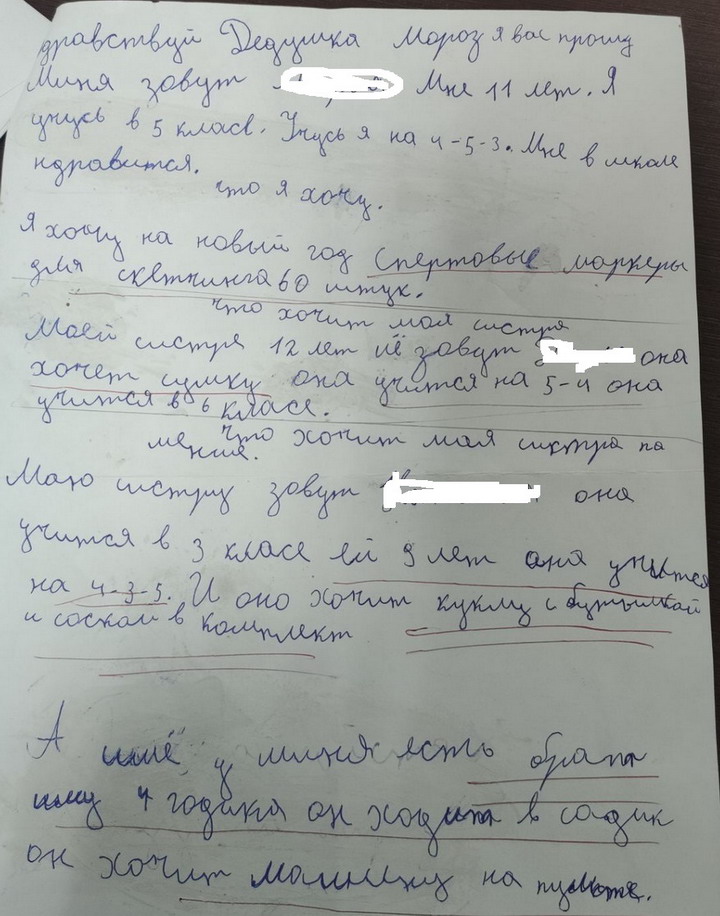 дравствуй Дедушка Мороз я вас прошу
Миня зовут Мне 11 лет. Я
учусь в 5 класе. Учусь я на 4-5-3. Мне в школе
ндравится.
что я хочу.
Я хочу на новый год спертовые маркеры
для скетчинга 60 штук.
что хочит моя систра
Моей систре 12 лет иё зовут она
хочет сумку она учится на 5-4 она
учится в 6 класе.
что хочит моя систра па
менше.
Маю систру зовут она
учится в 3 класе ей 9 лет она учится
на 4-3-5. И оно хочит куклу с бутылкай
и соскай в комплект
А ишё у миня есть брат
иму 4 годика он ходит в садик
он хочит машинку на пульте.